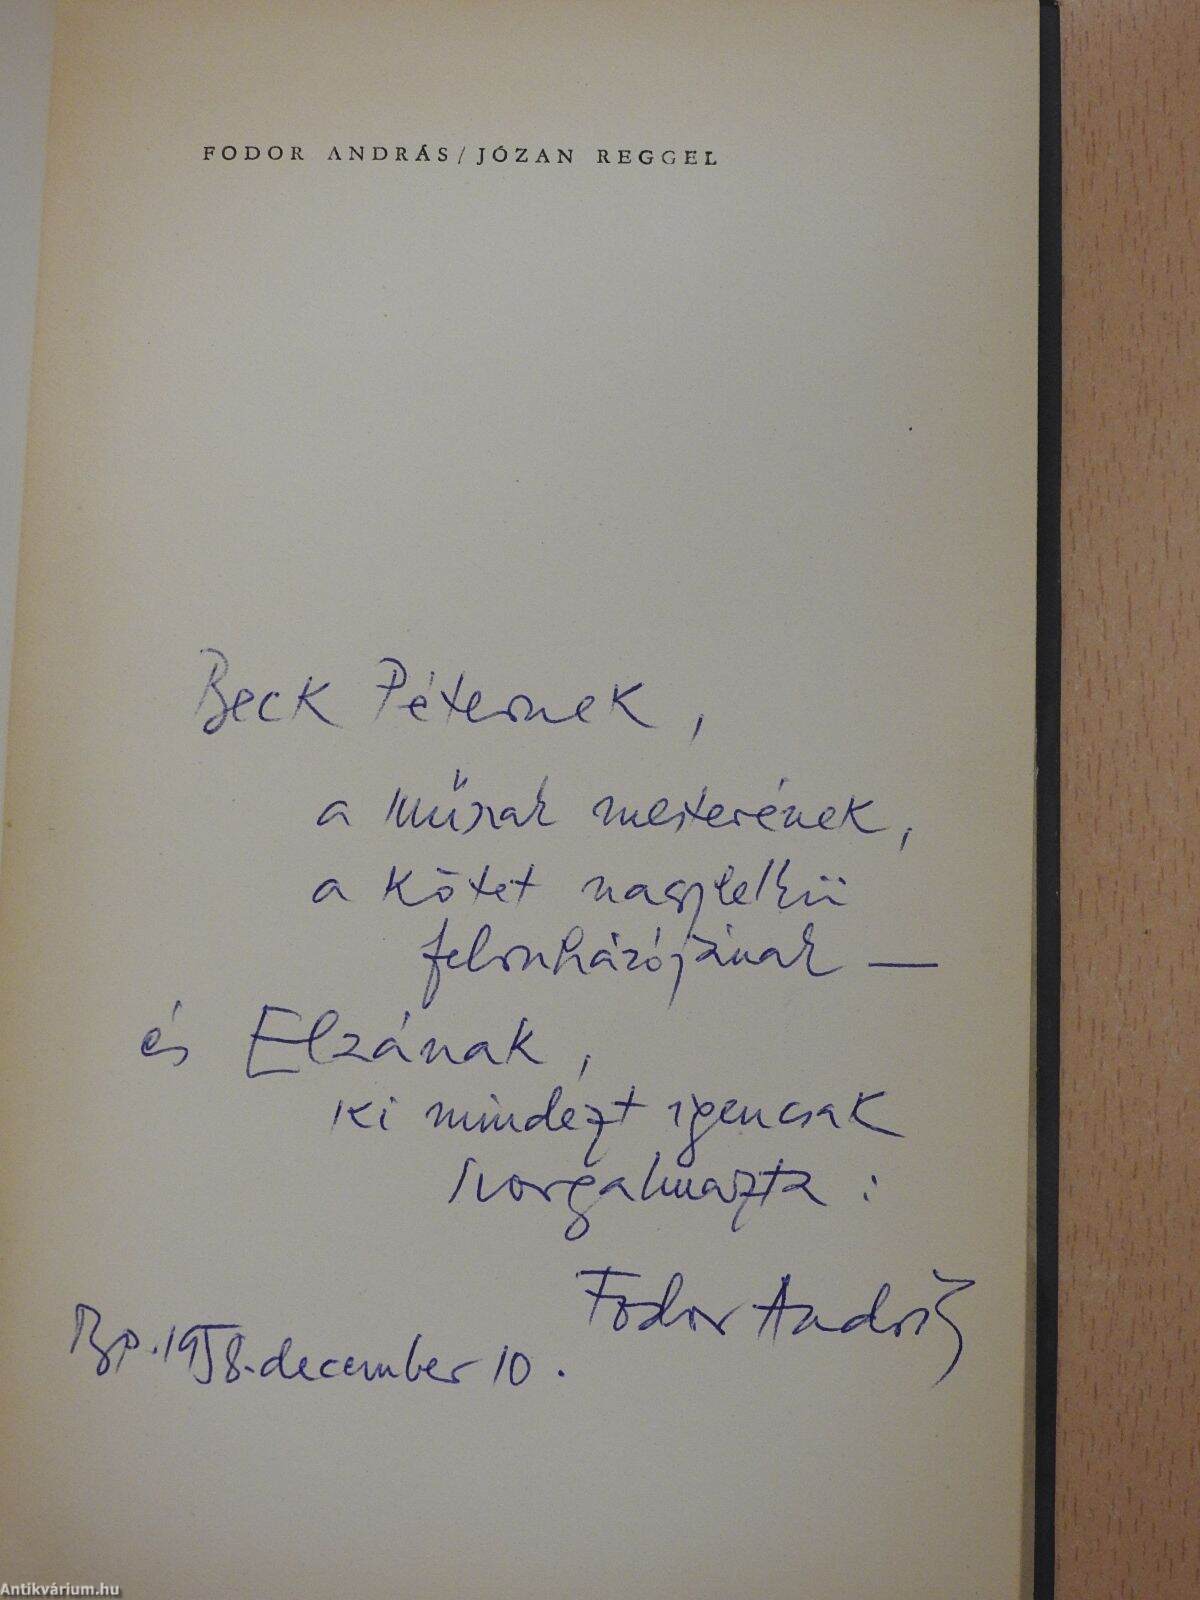 FODOR ANDRÁS / JÓZAN REGGEL
Beck Péternek,
a műszak mesterének,
a kötet nagylelkű
felruházójának —
és Elzának,
ki mindezt igencsak
szorgalmazta:
Fodor András
Bp. 1958. december 10.
Antikvárium.hu